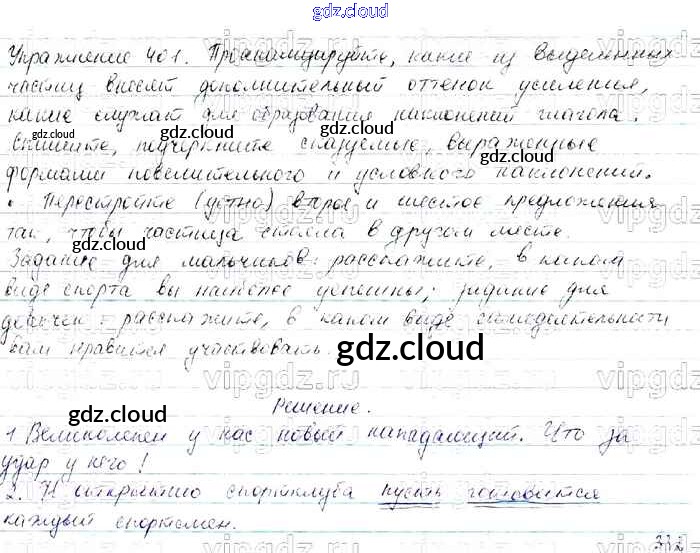 gdz.cloud
Упражнение 401. Проанализируйте, какие из выделенных
частиц вносят дополнительный оттенок усиления,
какие служат для образования наклонений глагола.
Спишите, подчеркните сказуемые, выраженные
формами повелительного и условного наклонений.
• Перестройте (устно) второе и шестое предложения
так, чтобы частица стояла в другом месте.
Задание для мальчиков: расскажите, в каком
виде спорта вы наиболее успешны; задание для
девочек: расскажите, в каком виде самодеятельности
вам нравится участвовать.
Решение.
1 Великолепен у нас новый нападающий. Что за
удар у него!
2. К открытию спортклуба пусть готовится
каждый спортсмен.